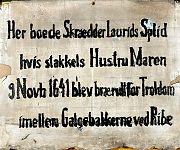 Her boede Skrædder Laurids Splid
hvis stakkels Hustru Maren
9 Novb 1641 blev brændt for Troldom
imellem Galgebakkerne ved Ribe